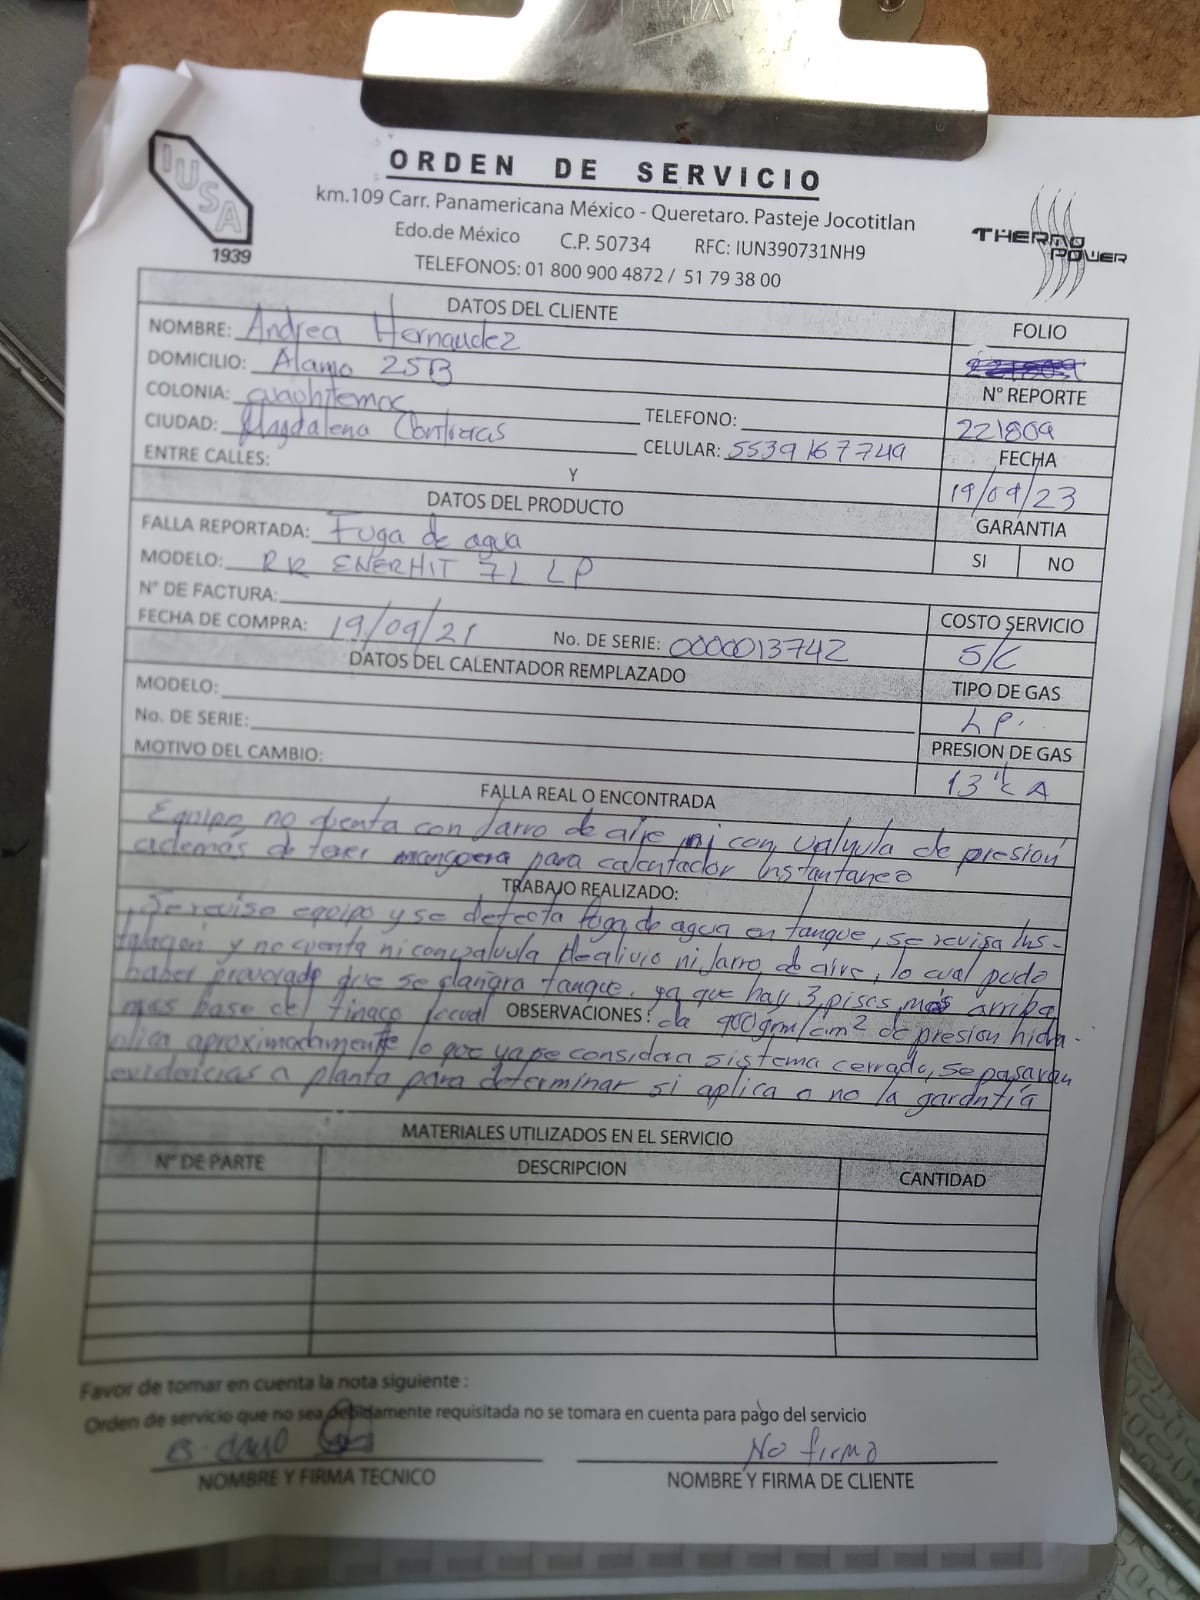 ORDEN DE SERVICIO
IUSA
1939
km.109 Carr. Panamericana México - Queretaro. Pasteje Jocotitlan
THERMO POWER
Edo.de México C.P. 50734 RFC: IUN390731NH9
TELEFONOS: 01 800 900 4872 / 51 79 38 00
DATOS DEL CLIENTE
FOLIO
NOMBRE: Andrea Hernandez
DOMICILIO: Alamo 25B
N° REPORTE
221809
COLONIA:
TELEFONO:
CIUDAD: Magdalena Contreras
CELULAR: 5539167749
FECHA
19/09/23
ENTRE CALLES: Y
DATOS DEL PRODUCTO
GARANTIA
SI NO
FALLA REPORTADA: Fuga de agua
MODELO: RR ENERHIT 7L LP
N° DE FACTURA:
COSTO SERVICIO
S/C
FECHA DE COMPRA: 19/09/21 No. DE SERIE: 0000013742
DATOS DEL CALENTADOR REMPLAZADO
TIPO DE GAS
LP.
MODELO:
No. DE SERIE:
PRESION DE GAS
13 "CA
MOTIVO DEL CAMBIO:
FALLA REAL O ENCONTRADA
Equipo no cuenta con Jarro de aire ni con valvula de presión
además de tener manguera para calentador Instantaneo
TRABAJO REALIZADO:
Se reviso equipo y se detecta fuga de agua en tanque, se revisa Ins-
talación y no cuenta ni con valvula de alivio ni Jarro de aire, lo cual pudo
haber provocado que se dañara tanque. ya que hay 3 pisos más arriba
mas base del tinaco
OBSERVACIONES:
da 900 grm/cm2 de presion hidra-
ulica aproximadamente lo que ya se considera sistema cerrado, se pasaran
evidencias a planta para determinar si aplica o no la garantía
MATERIALES UTILIZADOS EN EL SERVICIO
N° DE PARTE DESCRIPCION CANTIDAD
Favor de tomar en cuenta la nota siguiente :
Orden de servicio que no sea debidamente requisitada no se tomara en cuenta para pago del servicio
No firmo
NOMBRE Y FIRMA TECNICO NOMBRE Y FIRMA DE CLIENTE